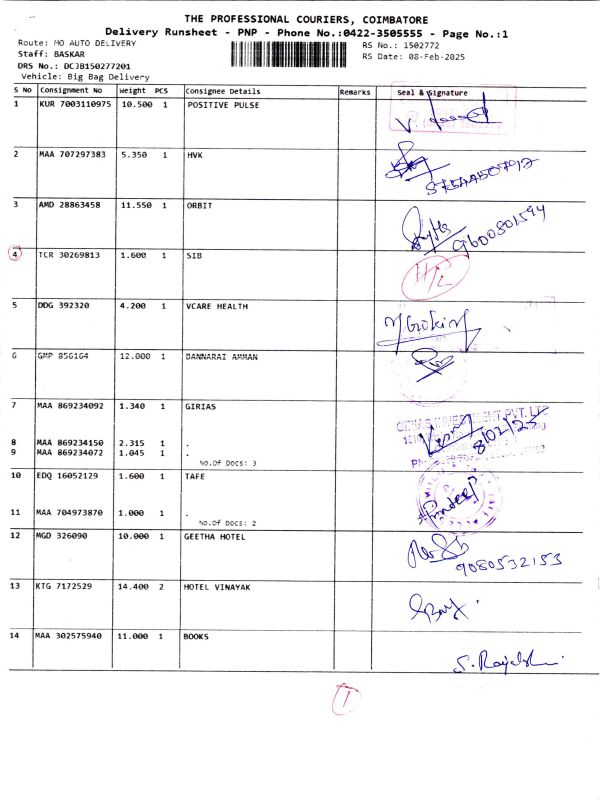 THE PROFESSIONAL COURIERS, COIMBATORE
Delivery Runsheet - PNP - Phone No.:0422-3505555 - Page No.:1
Route: MO AUTO DELIVERY RS No.: 1502772
Staff: BASKAR RS Date: 08-Feb-2025
DRS No.: DCJB150277201
Vehicle: Big Bag Delivery
S No Consignment No Weight PCS Consignee Details Remarks Seal & Signature
1 KUR 7003110975 10.500 1 POSITIVE PULSE
2 MAA 707297383 5.350 1 HVK
3 AMD 28863458 11.550 1 ORBIT
9600801594
4 TCR 30269813 1.600 1 SIB
5 DDG 392320 4.200 1 VCARE HEALTH
6 GMP 856164 12.000 1 DANNARAI AMMAN
7 MAA 869234092 1.340 1 GIRIAS
8/02/25
8 MAA 869234150 2.315 1 .
9 MAA 869234072 1.045 1 .
No.Of Docs: 3
10 EDQ 16052129 1.600 1 TAFE
11 MAA 704973870 1.000 1 .
No.Of Docs: 2
12 MGD 326090 10.000 1 GEETHA HOTEL
9080532153
13 KTG 7172529 14.400 2 HOTEL VINAYAK
14 MAA 302575940 11.000 1 BOOKS
1